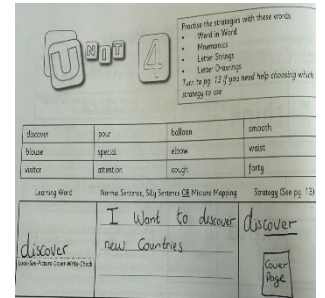 UNIT 4
Practise the strategies with these words.
• Word in Word
• Mnemonics
• Letter Strings
• Letter Drawings
Turn to pg. 13 if you need help choosing which
strategy to use
discover pour balloon smooth
blouse special elbow waist
visitor attention cough forty
Learning Word Normal Sentence, Silly Sentence OR Mistake Mapping Strategy (See pg. 13)
I Want to discover
new Countries
discover
Look-Say-Picture-Cover-Write-Check
discover
Cover
Page